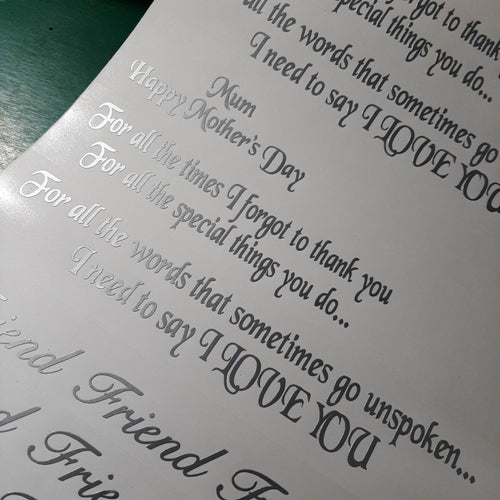 forgot to thank
special things you do...
all the words that sometimes go
I need to say I LOVE YOU
Mum
Happy Mother's Day
For all the times I forgot to thank you
For all the special things you do...
For all the words that sometimes go unspoken...
I need to say I LOVE YOU
Friend Friend F
Friend